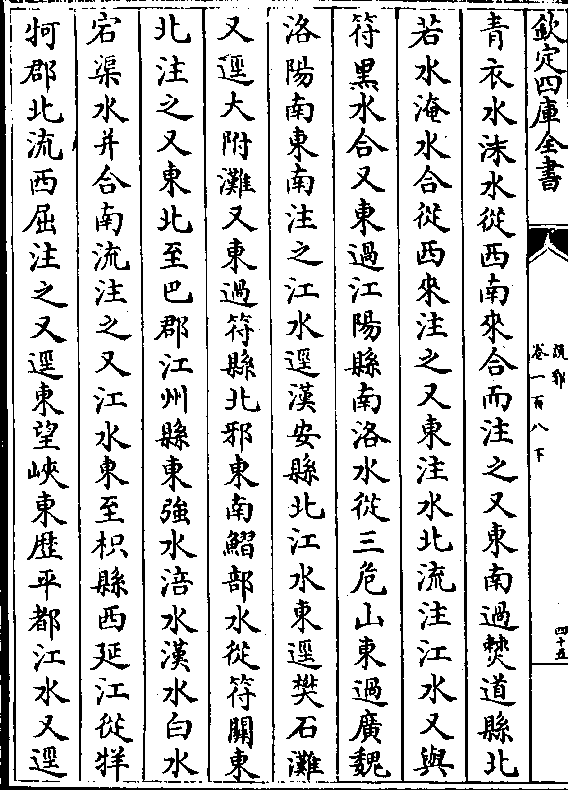 欽定四庫全書
說郛
卷一百八下
四十五
青衣水沫水從西南來合而注之又東南過僰道縣北
若水淹水合從西來注之又東注水北流注江水又與
符黑水合又東過江陽縣南洛水從三危山東過廣魏
洛陽南東南注之江水逕漢安縣北江水東逕樊石灘
又逕大附灘又東過符縣北邪東南鰼部水從符關東
北注之又東北至巴郡江州縣東強水涪水漢水白水
宕渠水并合南流注之又江水東至枳縣西延江從牂
牁郡北流西屈注之又逕東望峽東歷平都江水又逕